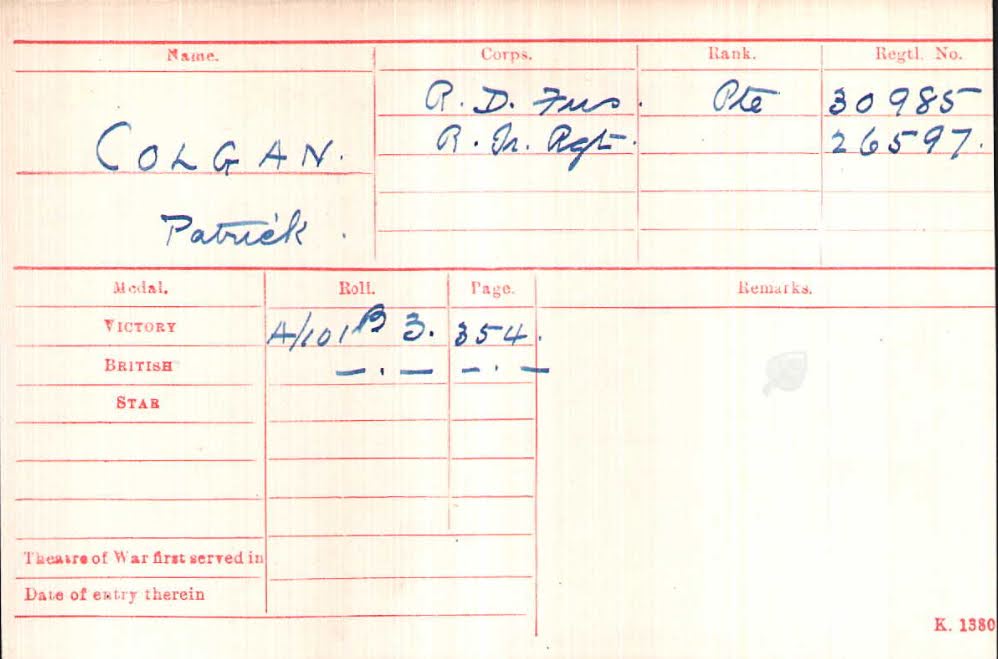 Name. Corps. Rank. Regtl. No.
R. D. Fus. Pte 30985
COLGAN. R. Ir. Rgt. 26597.
Patrick.
Medal. Roll. Page. Remarks.
VICTORY A/101 B 3. 354.
BRITISH — . — — . —
STAR
Theatre of War first served in
Date of entry therein
K. 1380